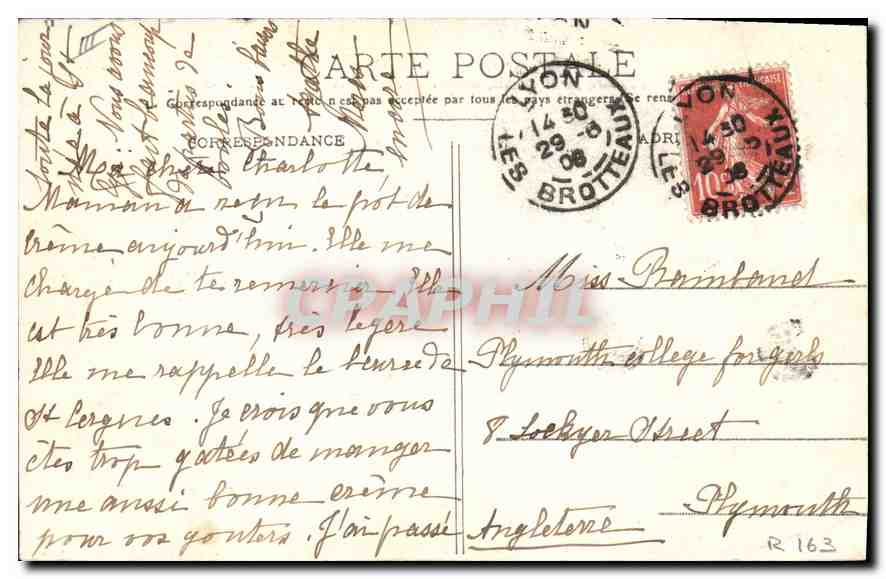 CARTE POSTALE
Correspondance au recto n'est pas acceptée par tous les pays étrangers. Se rens
CORRESPONDANCE
ADR
LYON
LES BROTTEAUX
14 30
29 -5
08
LYON
LES BROTTEAUX
14 30
29 -5
08
10
Ma chère Charlotte,
Maman a reçu le pot de
crème aujourd'hui. Elle me
charge de te remercier. Elle
est très bonne, très légère
Elle me rappelle le beurre de
St Cergues. Je crois que vous
êtes trop gatées de manger
une aussi bonne crème
pour vos gouters. J'ai passé
toute la jour
Nous avons
Miss Rambaud
Plymouth college for girls
8 Lockyer Street
Plymouth
Angleterre
CPAPHIL
R 163